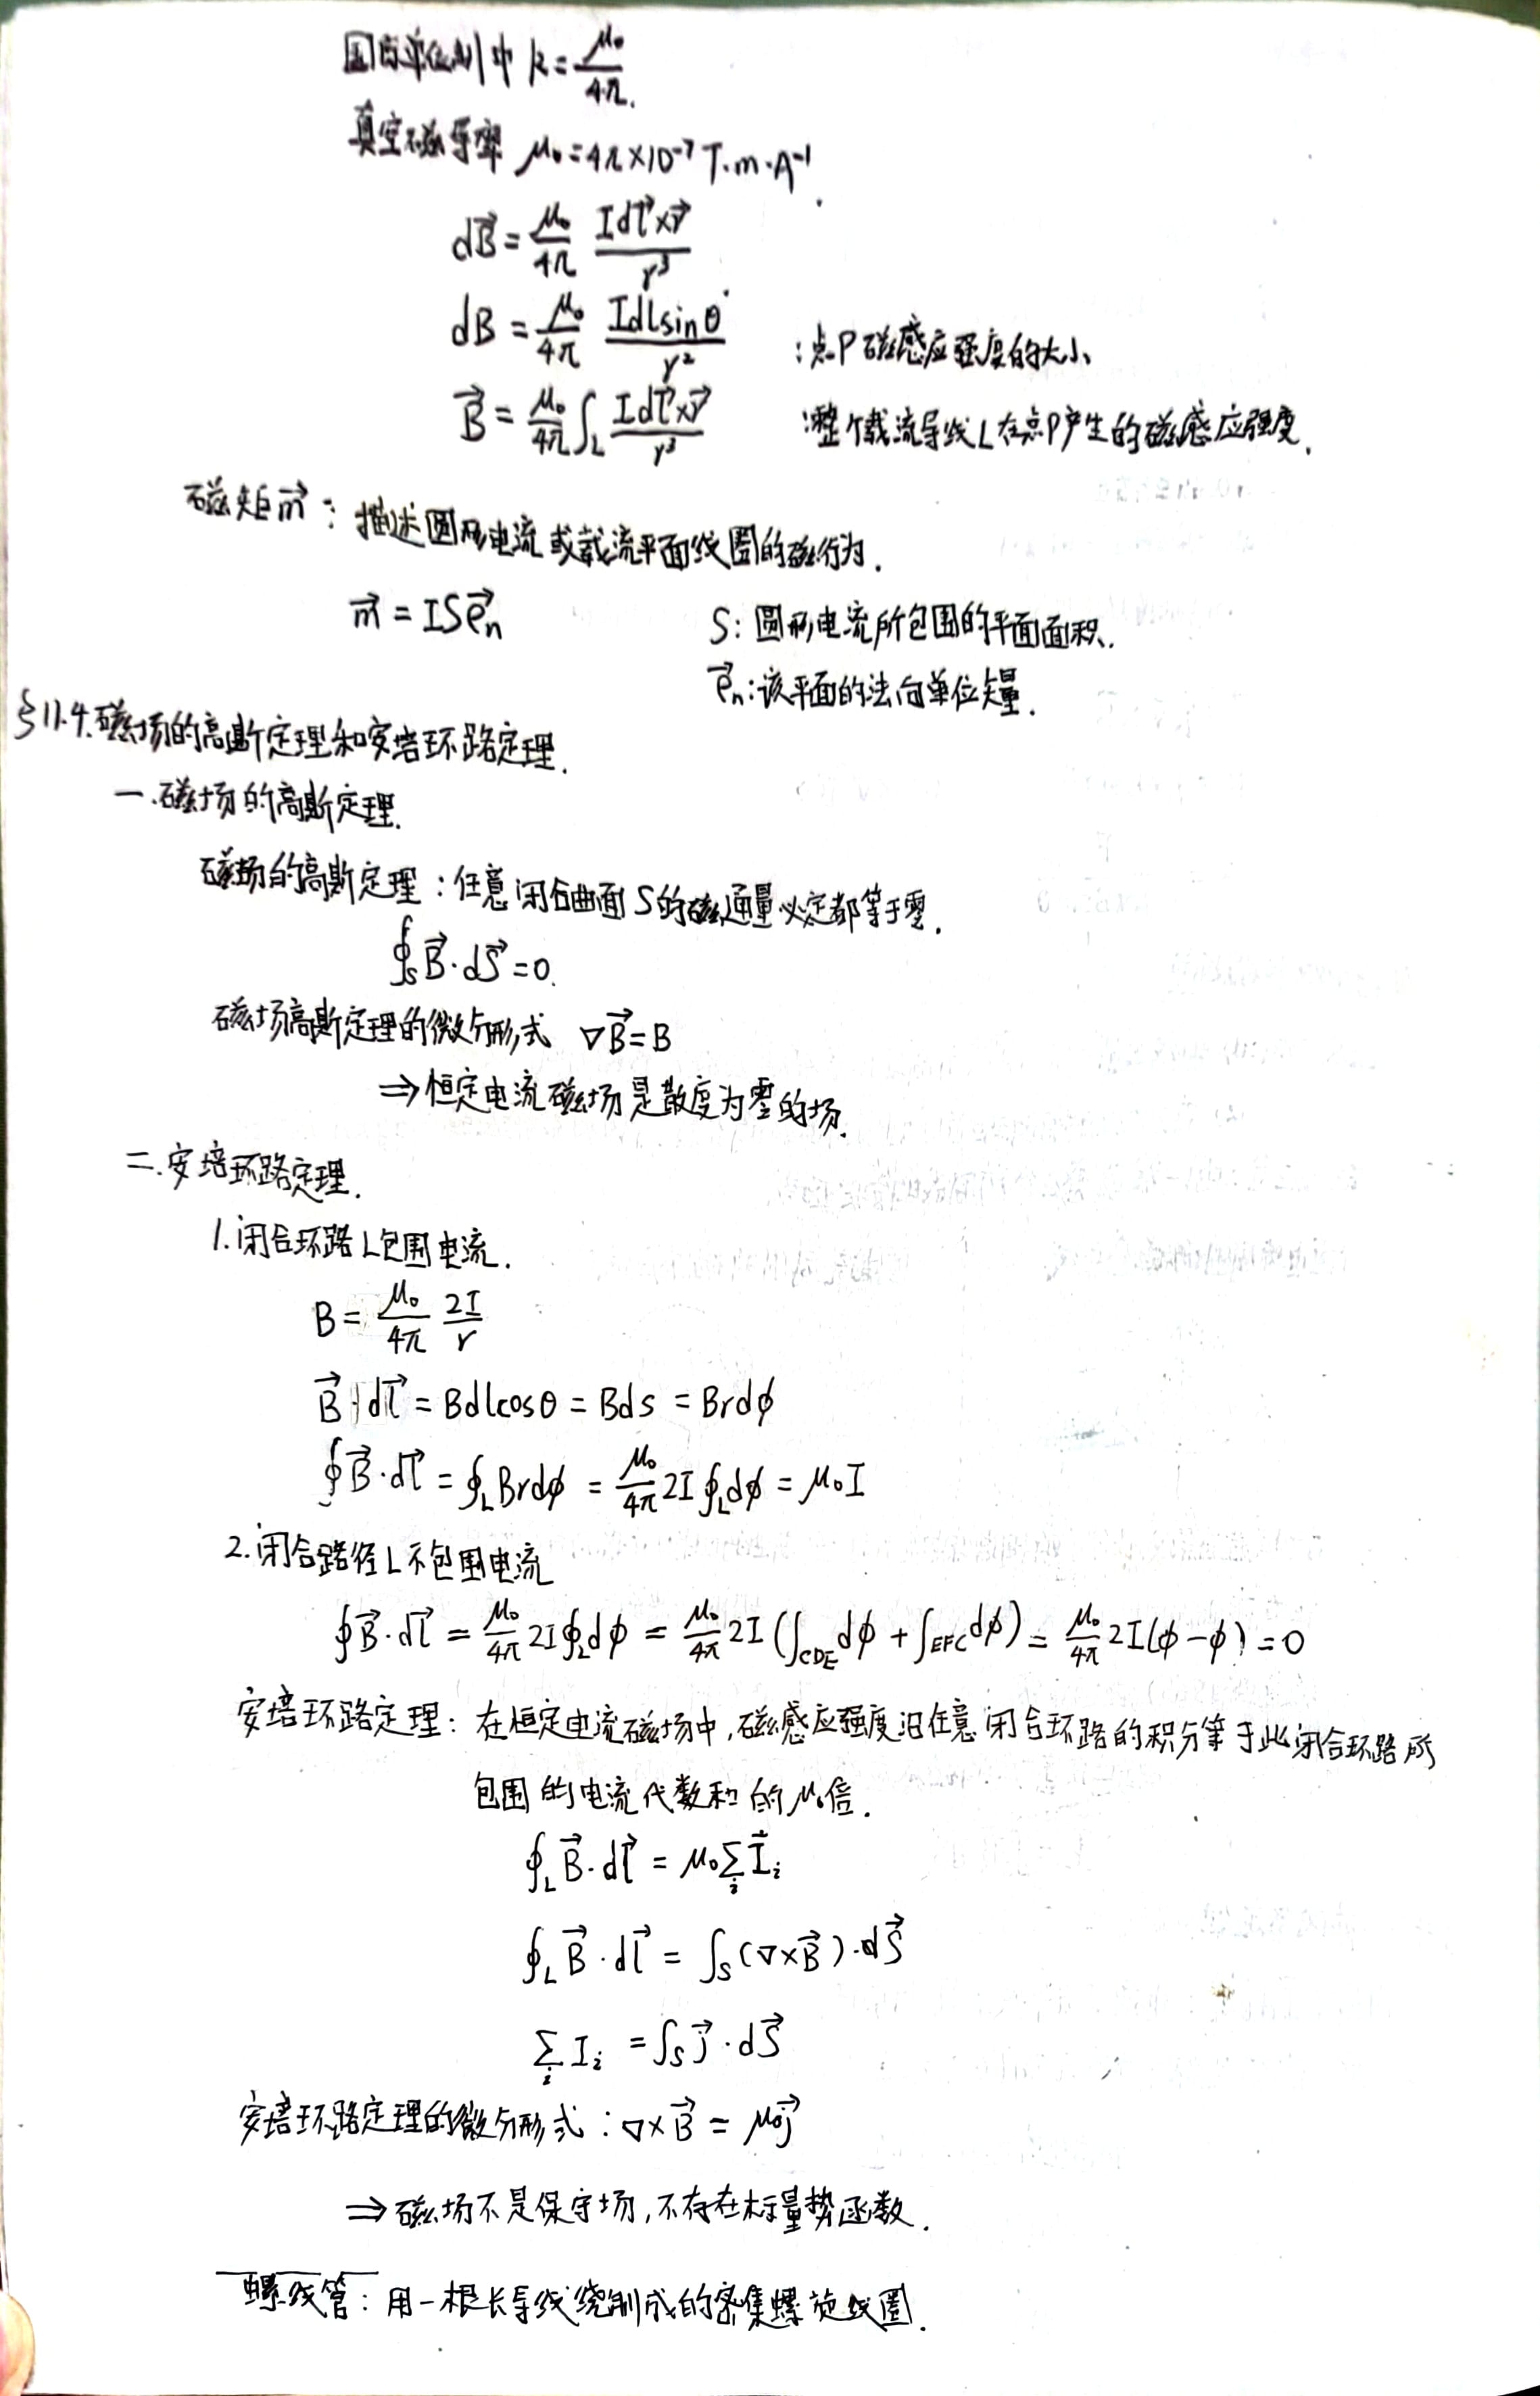 国际单位制中 k = μ₀/4π.
真空磁导率 μ₀ = 4π×10⁻⁷ T·m·A⁻¹.
dB⃗ = μ₀/4π Idl⃗×r⃗/r³
dB = μ₀/4π Idlsinθ/r² : 点P磁感应强度的大小
B⃗ = μ₀/4π ∫_L Idl⃗×r⃗/r³ : 整个载流导线L在点P产生的磁感应强度.
磁矩m⃗ : 描述圆形电流或载流平面线圈的磁行为.
m⃗ = ISe⃗ₙ S: 圆形电流所包围的平面面积.
e⃗ₙ: 该平面的法向单位矢量.
§11.4. 磁场的高斯定理和安培环路定理.
一.磁场的高斯定理.
磁场的高斯定理 : 任意闭合曲面S的磁通量必定都等于零.
∮_S B⃗·dS⃗ = 0.
磁场高斯定理的微分形式 ∇B⃗ = B
⇒ 恒定电流磁场是散度为零的场.
二.安培环路定理.
1.闭合环路L包围电流.
B = μ₀/4π 2I/r
B⃗·dl⃗ = Bdlcosθ = Bds = Brdϕ
∮B⃗·dl⃗ = ∮_L Brdϕ = μ₀/4π 2I∮_L dϕ = μ₀I
2.闭合路径L不包围电流
∮B⃗·dl⃗ = μ₀/4π 2I∮_L dϕ = μ₀/4π 2I(∫_CDE dϕ + ∫_EFC dϕ) = μ₀/4π 2I(ϕ-ϕ) = 0
安培环路定理: 在恒定电流磁场中,磁感应强度沿任意闭合环路的积分等于此闭合环路所
包围的电流代数和的μ₀倍.
∮_L B⃗·dl⃗ = μ₀∑ᵢI⃗ᵢ
∮_L B⃗·dl⃗ = ∫_S(∇×B⃗)·dS⃗
∑ᵢIᵢ = ∫_S j⃗·dS⃗
安培环路定理的微分形式 : ∇×B⃗ = μ₀j⃗
⇒ 磁场不是保守场,不存在标量势函数.
螺线管: 用一根长导线绕制成的密集螺旋线圈.